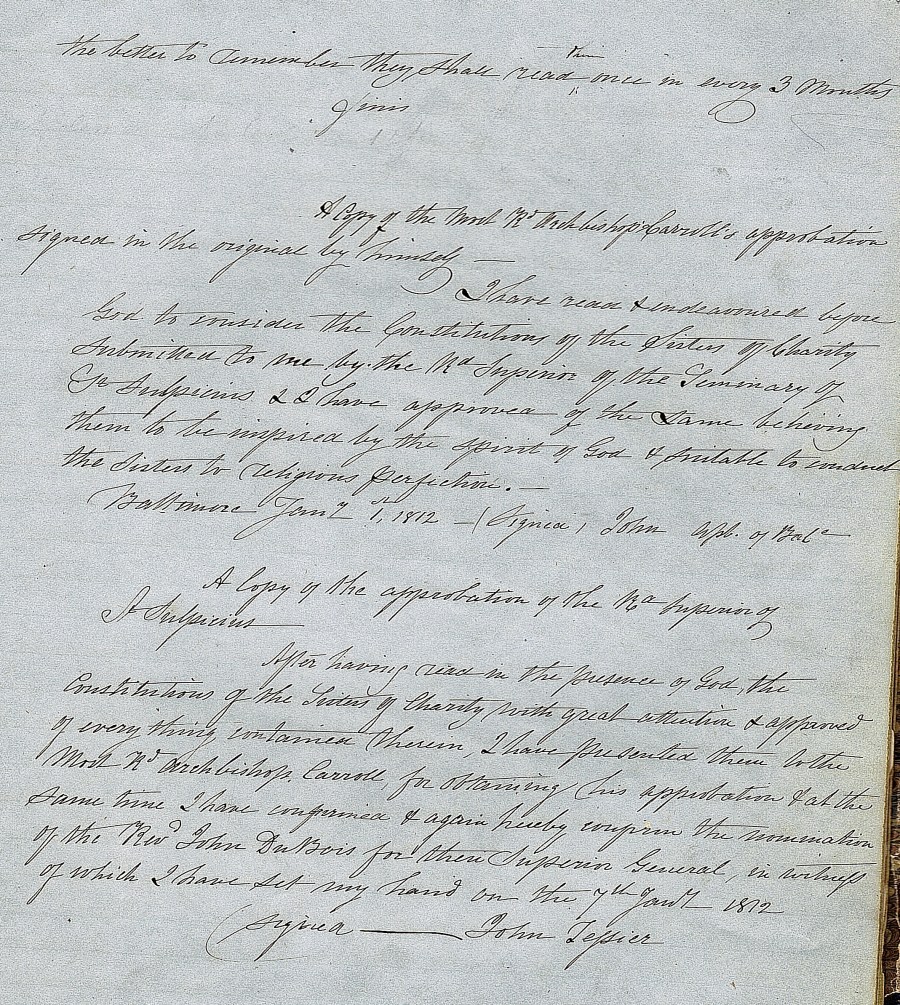 the better to remember they shall read them once in every 3 Months
Finis
A Copy of the Most Rd Archbishop Carroll's approbation
signed in the original by himself —
I have read & endeavoured before
God to consider the Constitutions of the Sisters of Charity
submitted to me by the Rd Superior of the Seminary of
St Sulpicius & I have approved of the same believing
them to be inspired by the spirit of God & suitable to conduct
the Sisters to religious perfection. —
Baltimore Jany 1st, 1812 — (Signed) John Apb. of Balte
A Copy of the approbation of the Rd Superior of
St Sulpicius —
After having read in the presence of God, the
Constitutions of the Sisters of Charity with great attention & approved
of every thing contained therein, I have presented them to the
Most Rd Archbishop Carroll, for obtaining his approbation & at the
same time I have confirmed & again hereby confirm the nomination
of the Revd John DuBois for there Superior General, in witness
of which I have set my hand on the 7th Jany 1812
(Signed — John Tessier